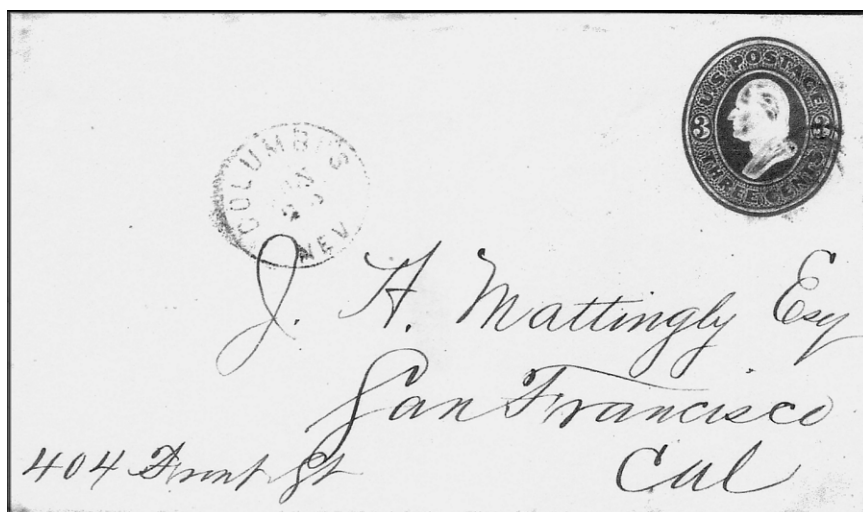 U.S. POSTAGE
3 3
THREE CENTS
COLUMBUS
NEV
J. H. Mattingly Esq
San Francisco
Cal
404 Front St